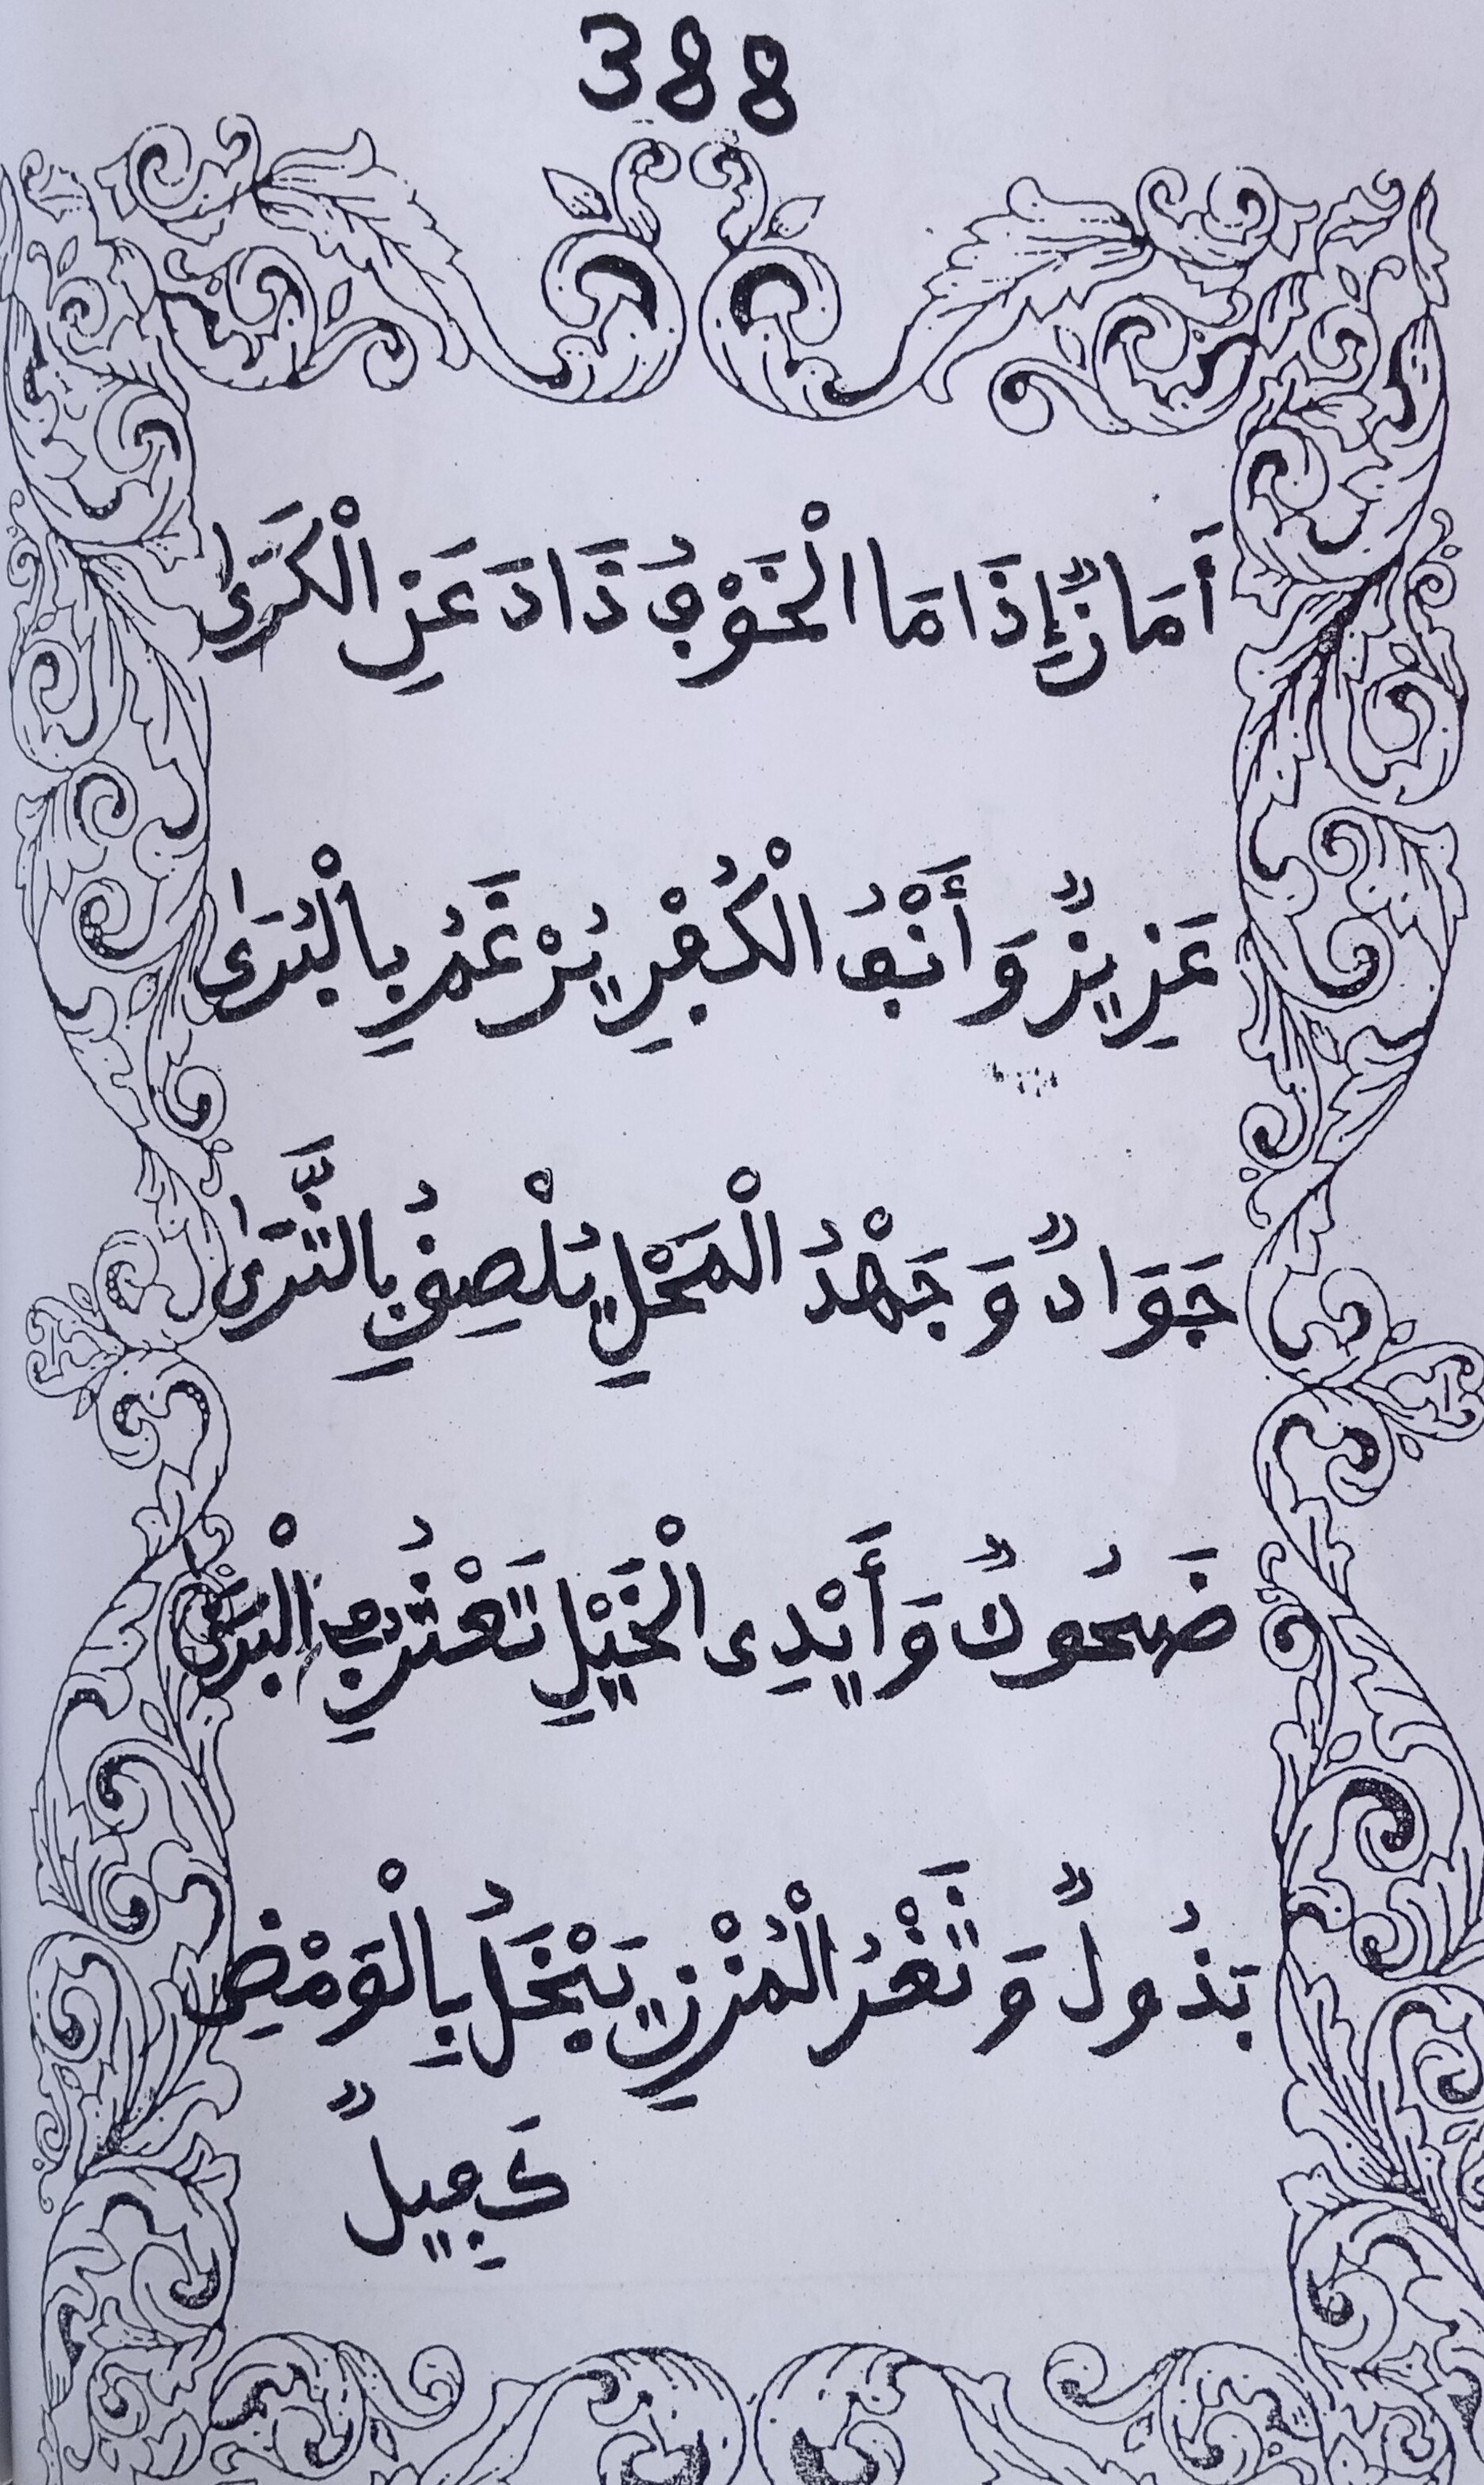 388
أَمَانٌ إِذَا مَا الْخَوْفُ ذَادَ عَنِ الْكَرَىٰ
عَزِيزٌ وَأَنْفُ الْكُفْرِ يُرْغَمُ بِالْبُرَىٰ
جَوَادٌ وَجَهْدُ الْمَحْلِ يُلْصِقُ بِالثَّرَىٰ
ضَحُوكٌ وَأَيْدِى الْخَيْلِ تَعْثُرُ فِى الْبَرَىٰ
بَذُولٌ وَثَغْرُ الْمُزْنِ يَبْخَلُ بِالْوَمْضِ
كَفِيلٌ